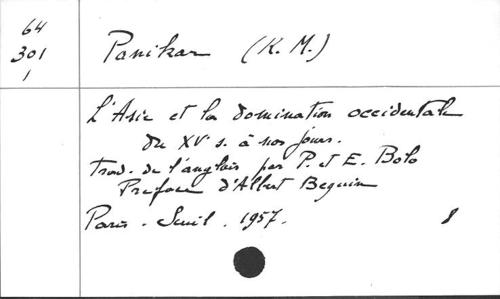 64
301
1
Panikar (K. M.)
L'Asie et la domination occidentale
du XVe s. à nos jours.
Trad. de l'anglais par P. et E. Bolo
Préface d'Albert Beguin
Paris - Seuil. 1957.
8